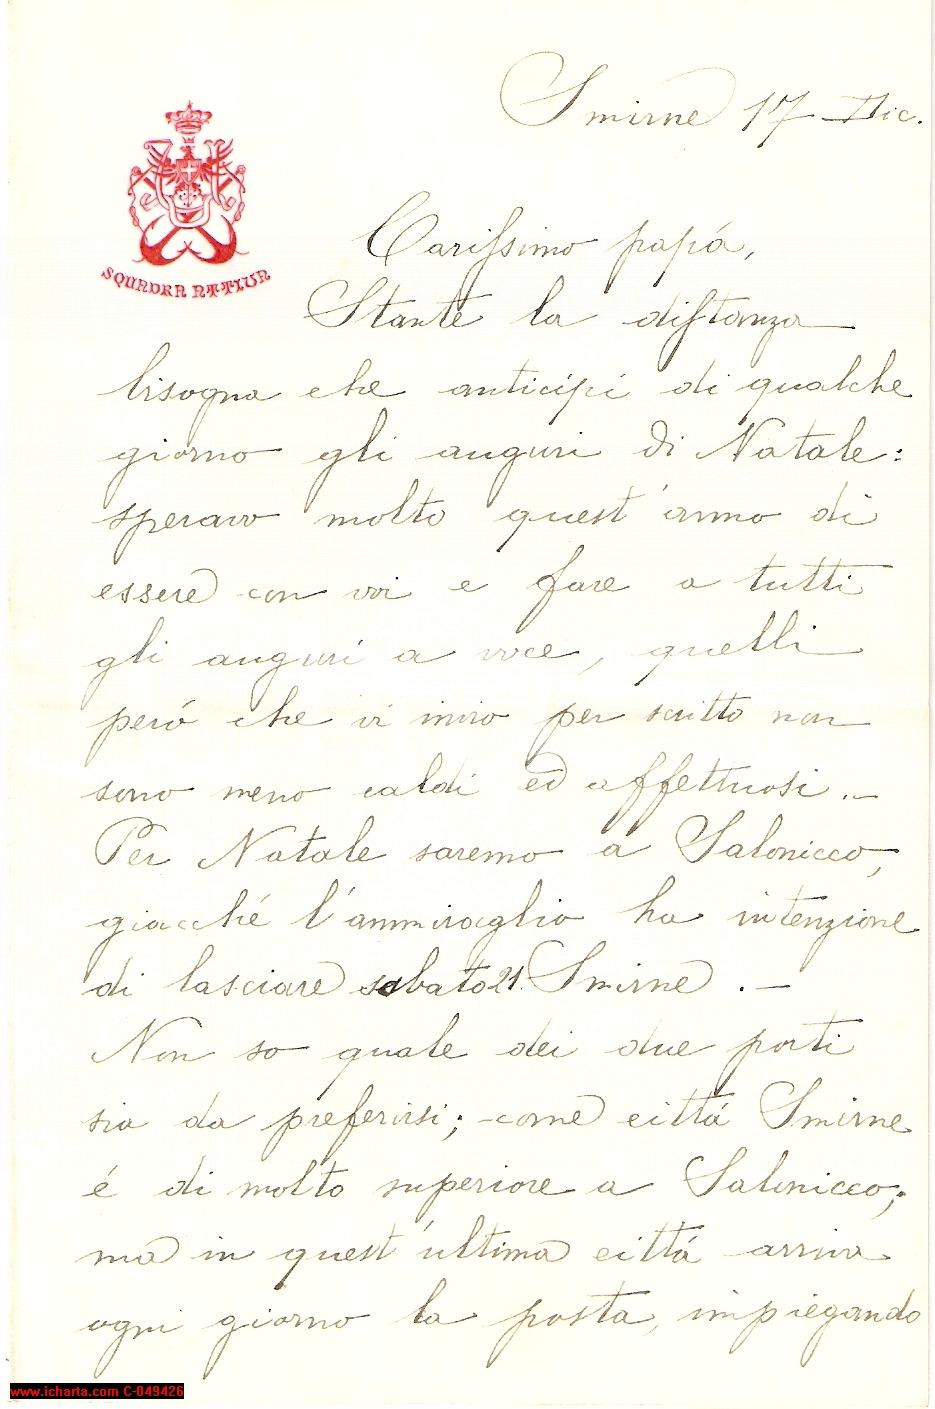 Smirne 17 Dic.
SQUADRA ATTIVA
Carissimo papá,
Stante la distanza
bisogna che anticipi di qualche
giorno gli auguri di Natale:
speravo molto quest'anno di
essere con voi e fare a tutti
gli auguri a voce, quelli
peró che vi invio per scritto non
sono meno caldi ed affettuosi.—
Per Natale saremo a Salonicco,
giacché l'ammiraglio ha intenzione
di lasciare sabato 21 Smirne.—
Non so quale dei due porti
sia da preferirsi; come cittá Smirne
é di molto superiore a Salonicco;
ma in quest'ultima cittá arriva
ogni giorno la posta, impiegando
www.icharta.com C-049426